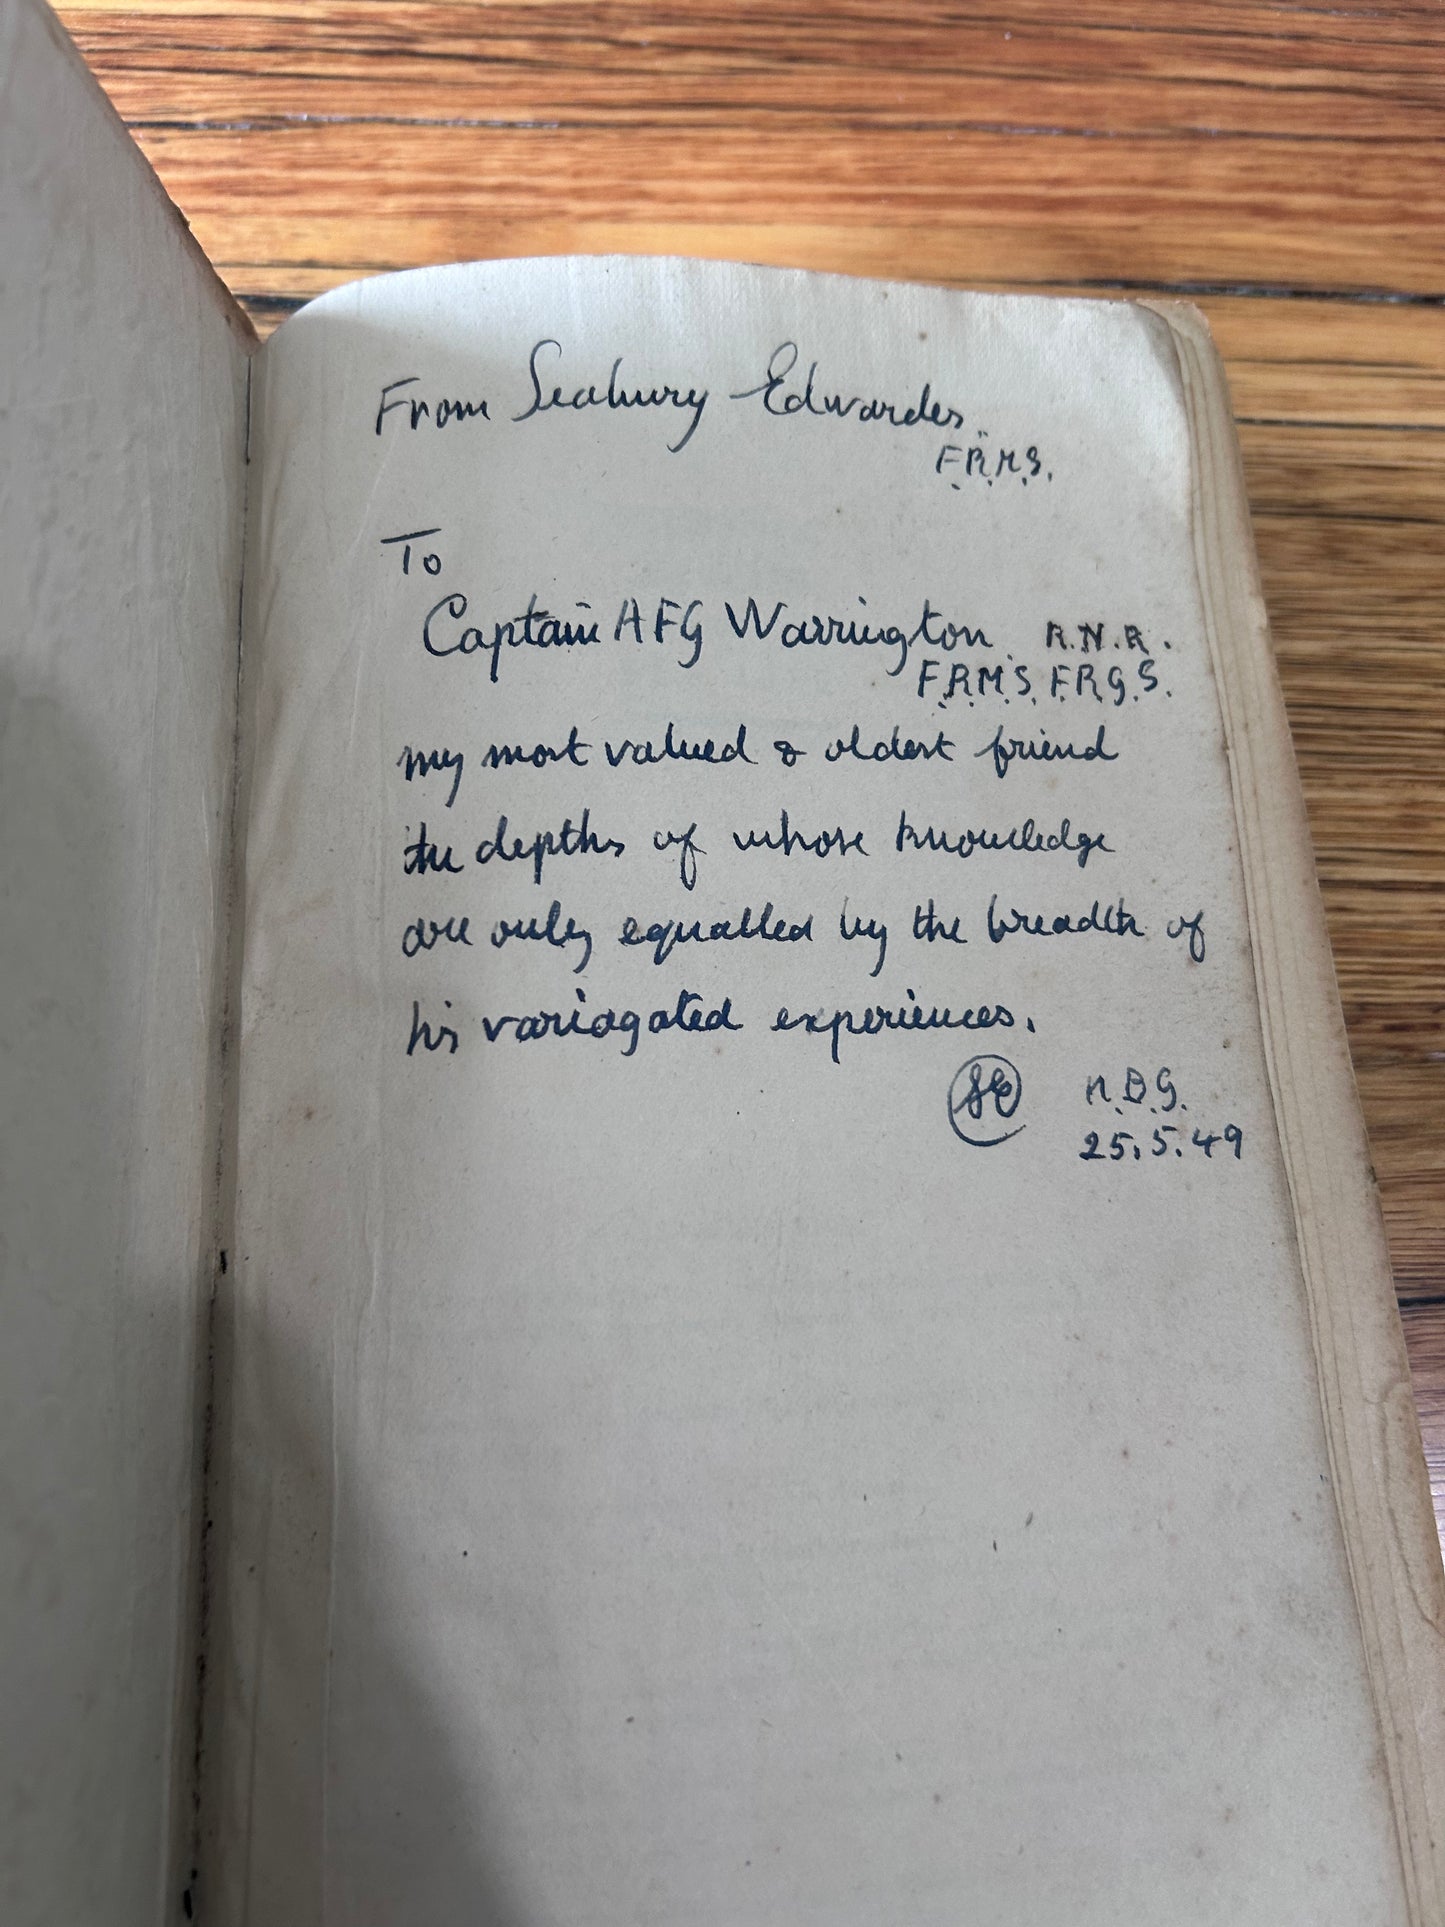 From Seabury Edwardes.
F.R.M.S.
To
Captain AFG Warrington. R.N.R.
F.R.M.S. F.R.G.S.
my most valued & oldest friend
the depths of whose knowledge
are only equalled by the breadth of
his variagated experiences.
SE
25.5.49